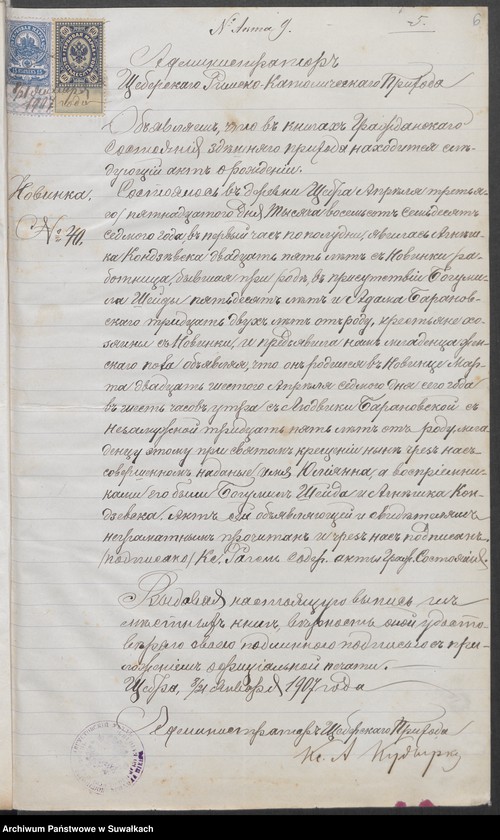 № Anna 9.
5.
6
Администраторъ
Щебрскаго Римско-Католическаго Прихода
Объявляетъ, что въ книгахъ Гражданскаго
Состоянія здѣшняго прихода находится слѣ-
дующій актъ о рожденіи.
Новинка.
№ 40.
Состоялось въ деревни Щебра Апрѣля третья-
го/пятнадцатого дня, тысяча восемьсотъ семьдесятъ
седмого года, въ первый часъ по полудни, явилась Агнѣш-
ка Кондзѣвска двадцать пять лѣтъ съ Новинки ра-
ботница, бывшая при родѣ, въ присутствіи Богуми-
ла Шейды пятьдесятъ лѣтъ и Адама Баранов-
скаго тридцать двухъ лѣтъ отъ роду, крестьяне хо-
зяени съ Новинки, и предъявила намъ младенца жен-
скаго пола объявляя, что онъ родился въ Новинце Мар-
та двадцать шестого Апрѣля седмого дня сего года
въ шесть часовъ утра съ Людвики Барановской съ
незамужной тридцать пять лѣтъ отъ роду, мла-
денцу этому при святомъ крещеніи нынѣ чрезъ насъ
совершенномъ наданые имя Юліянна, а воспріемни-
ками его были Богумилъ Шейда и Агнѣшка Кон-
дзевска. Актъ сей объявляющей и свидѣтелямъ
неграмотнымъ прочитанъ и чрезъ насъ подписанъ.
/подписано/ Кс. Содер. акты Граж. Состоянія.
Выдавая настоящую выпись изъ
мѣстныхъ книгъ, вѣрность оной удосто-
вѣряю своею подлинною подписью съ при-
ложеніемъ оффиціальной печати.
Щебра, Января 1907 года
Администраторъ Щебрскаго Прихода
Кс. А Кудырк
Archiwum Państwowe w Suwałkach